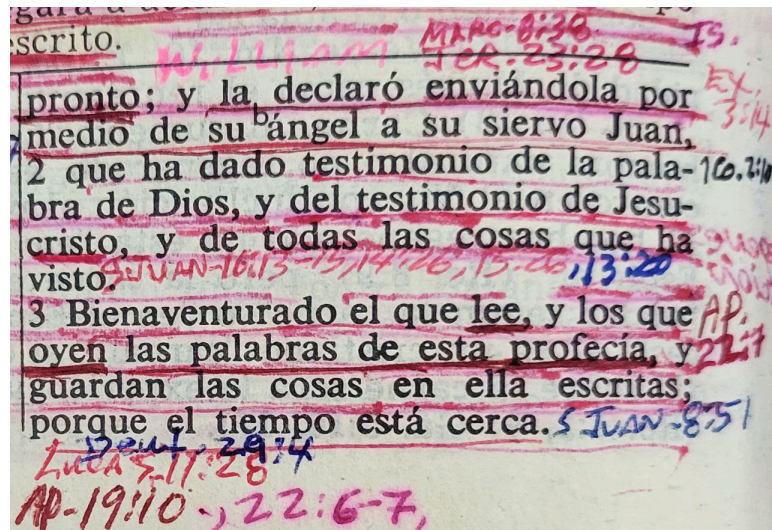 escrito.
WILLIAM MARC-8:38 IS.
JER. 23:28
pronto; y la declaró enviándola por EX.
3:14
medio de su ᵇángel a su siervo Juan,
2 que ha dado testimonio de la pala-
bra de Dios, y del testimonio de Jesu-
cristo, y de todas las cosas que ha
visto. S JUAN-16:13-15, 14:26, 15:26, 13:20
3 Bienaventurado el que lee, y los que AP.
oyen las palabras de esta profecía, y 22:7
guardan las cosas en ella escritas;
porque el tiempo está cerca. S JUAN-8:51
Deut. 29:4
Lucas-11:28
AP-19:10., 22:6-7,